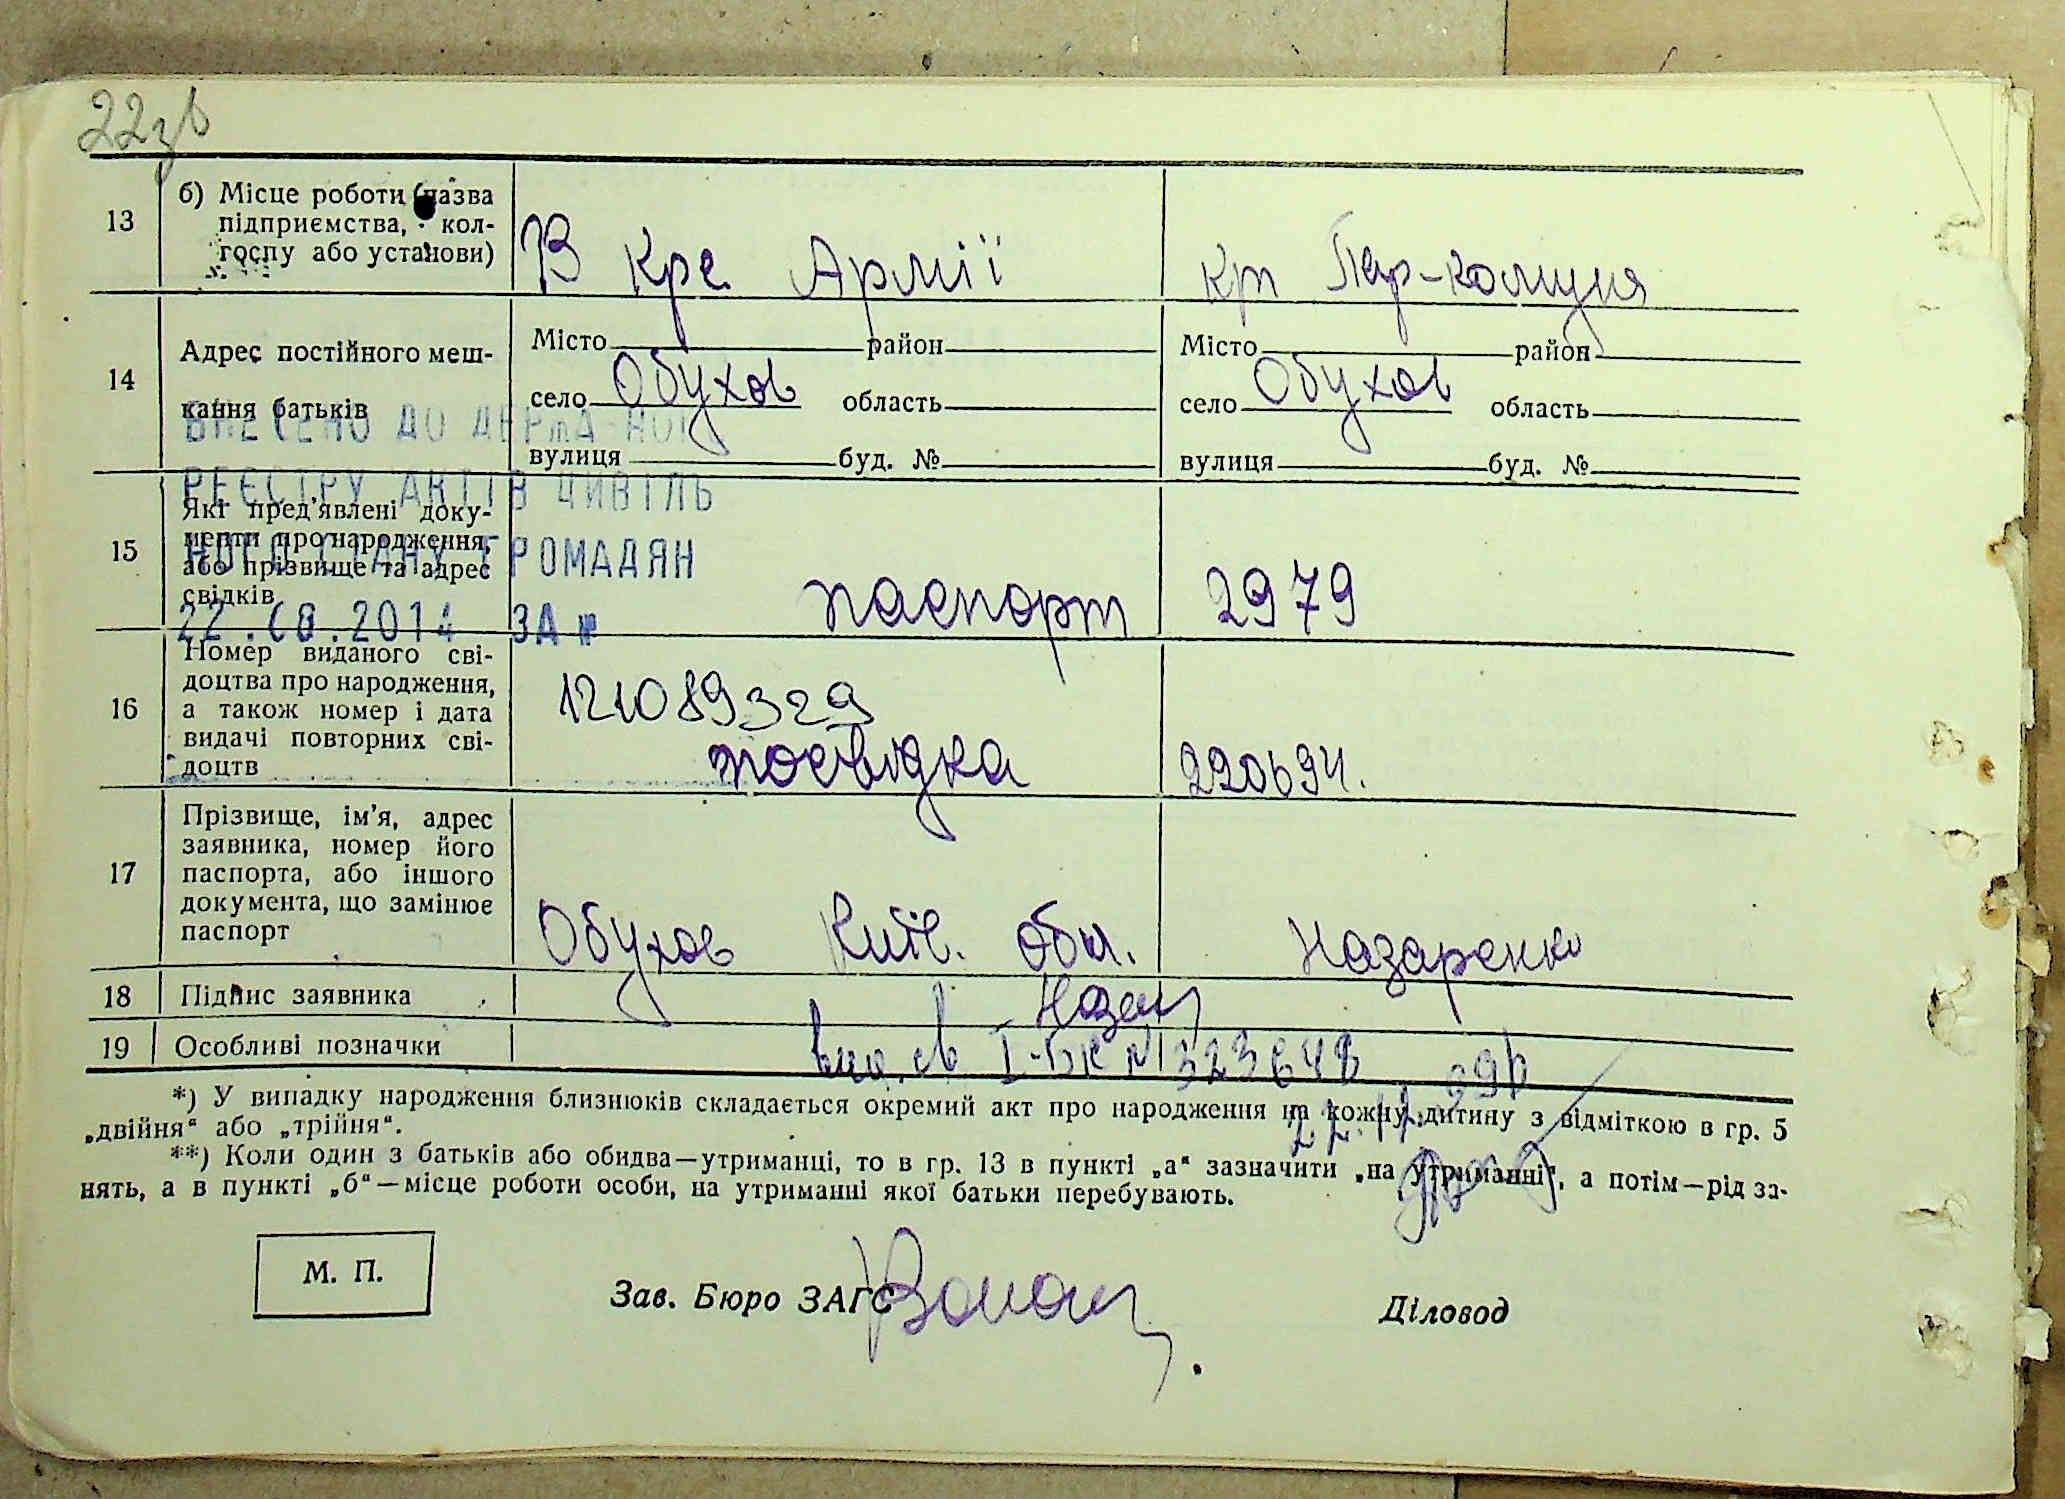 22зв
13 б) Місце роботи (назва
підприємства, кол-
госпу або установи)
В Крс Армії
кп Пар-комуна
14 Адрес постійного меш-
кання батьків
Місто район
село Обухов область
вулиця буд. №
Місто район
село Обухов область
вулиця буд. №
ВНЕСЕНО ДО ДЕРЖАВНОГО
РЕЄСТРУ АКТІВ ЦИВІЛЬ
НОГО СТАНУ ГРОМАДЯН
22.08.2014 ЗА №
15 Які пред'явлені доку-
менти про народження,
або прізвище та адрес
свідків
паспорт 2979
16 Номер виданого сві-
доцтва про народження,
а також номер і дата
видачі повторних сві-
доцтв
121089329
посвідка 220694.
17 Прізвище, ім'я, адрес
заявника, номер його
паспорта, або іншого
документа, що замінює
паспорт
Обухов Київ. обл. Назаренко
18 Підпис заявника
19 Особливі позначки
св І-БК № 323648
*) У випадку народження близнюків складається окремий акт про народження на кожну дитину з відміткою в гр. 5
„двійня“ або „трійня“.
**) Коли один з батьків або обидва—утриманці, то в гр. 13 в пункті „а“ зазначити „на утриманні“, а потім—рід за-
нять, а в пункті „б“—місце роботи особи, на утриманні якої батьки перебувають.
М. П.
Зав. Бюро ЗАГС
Діловод